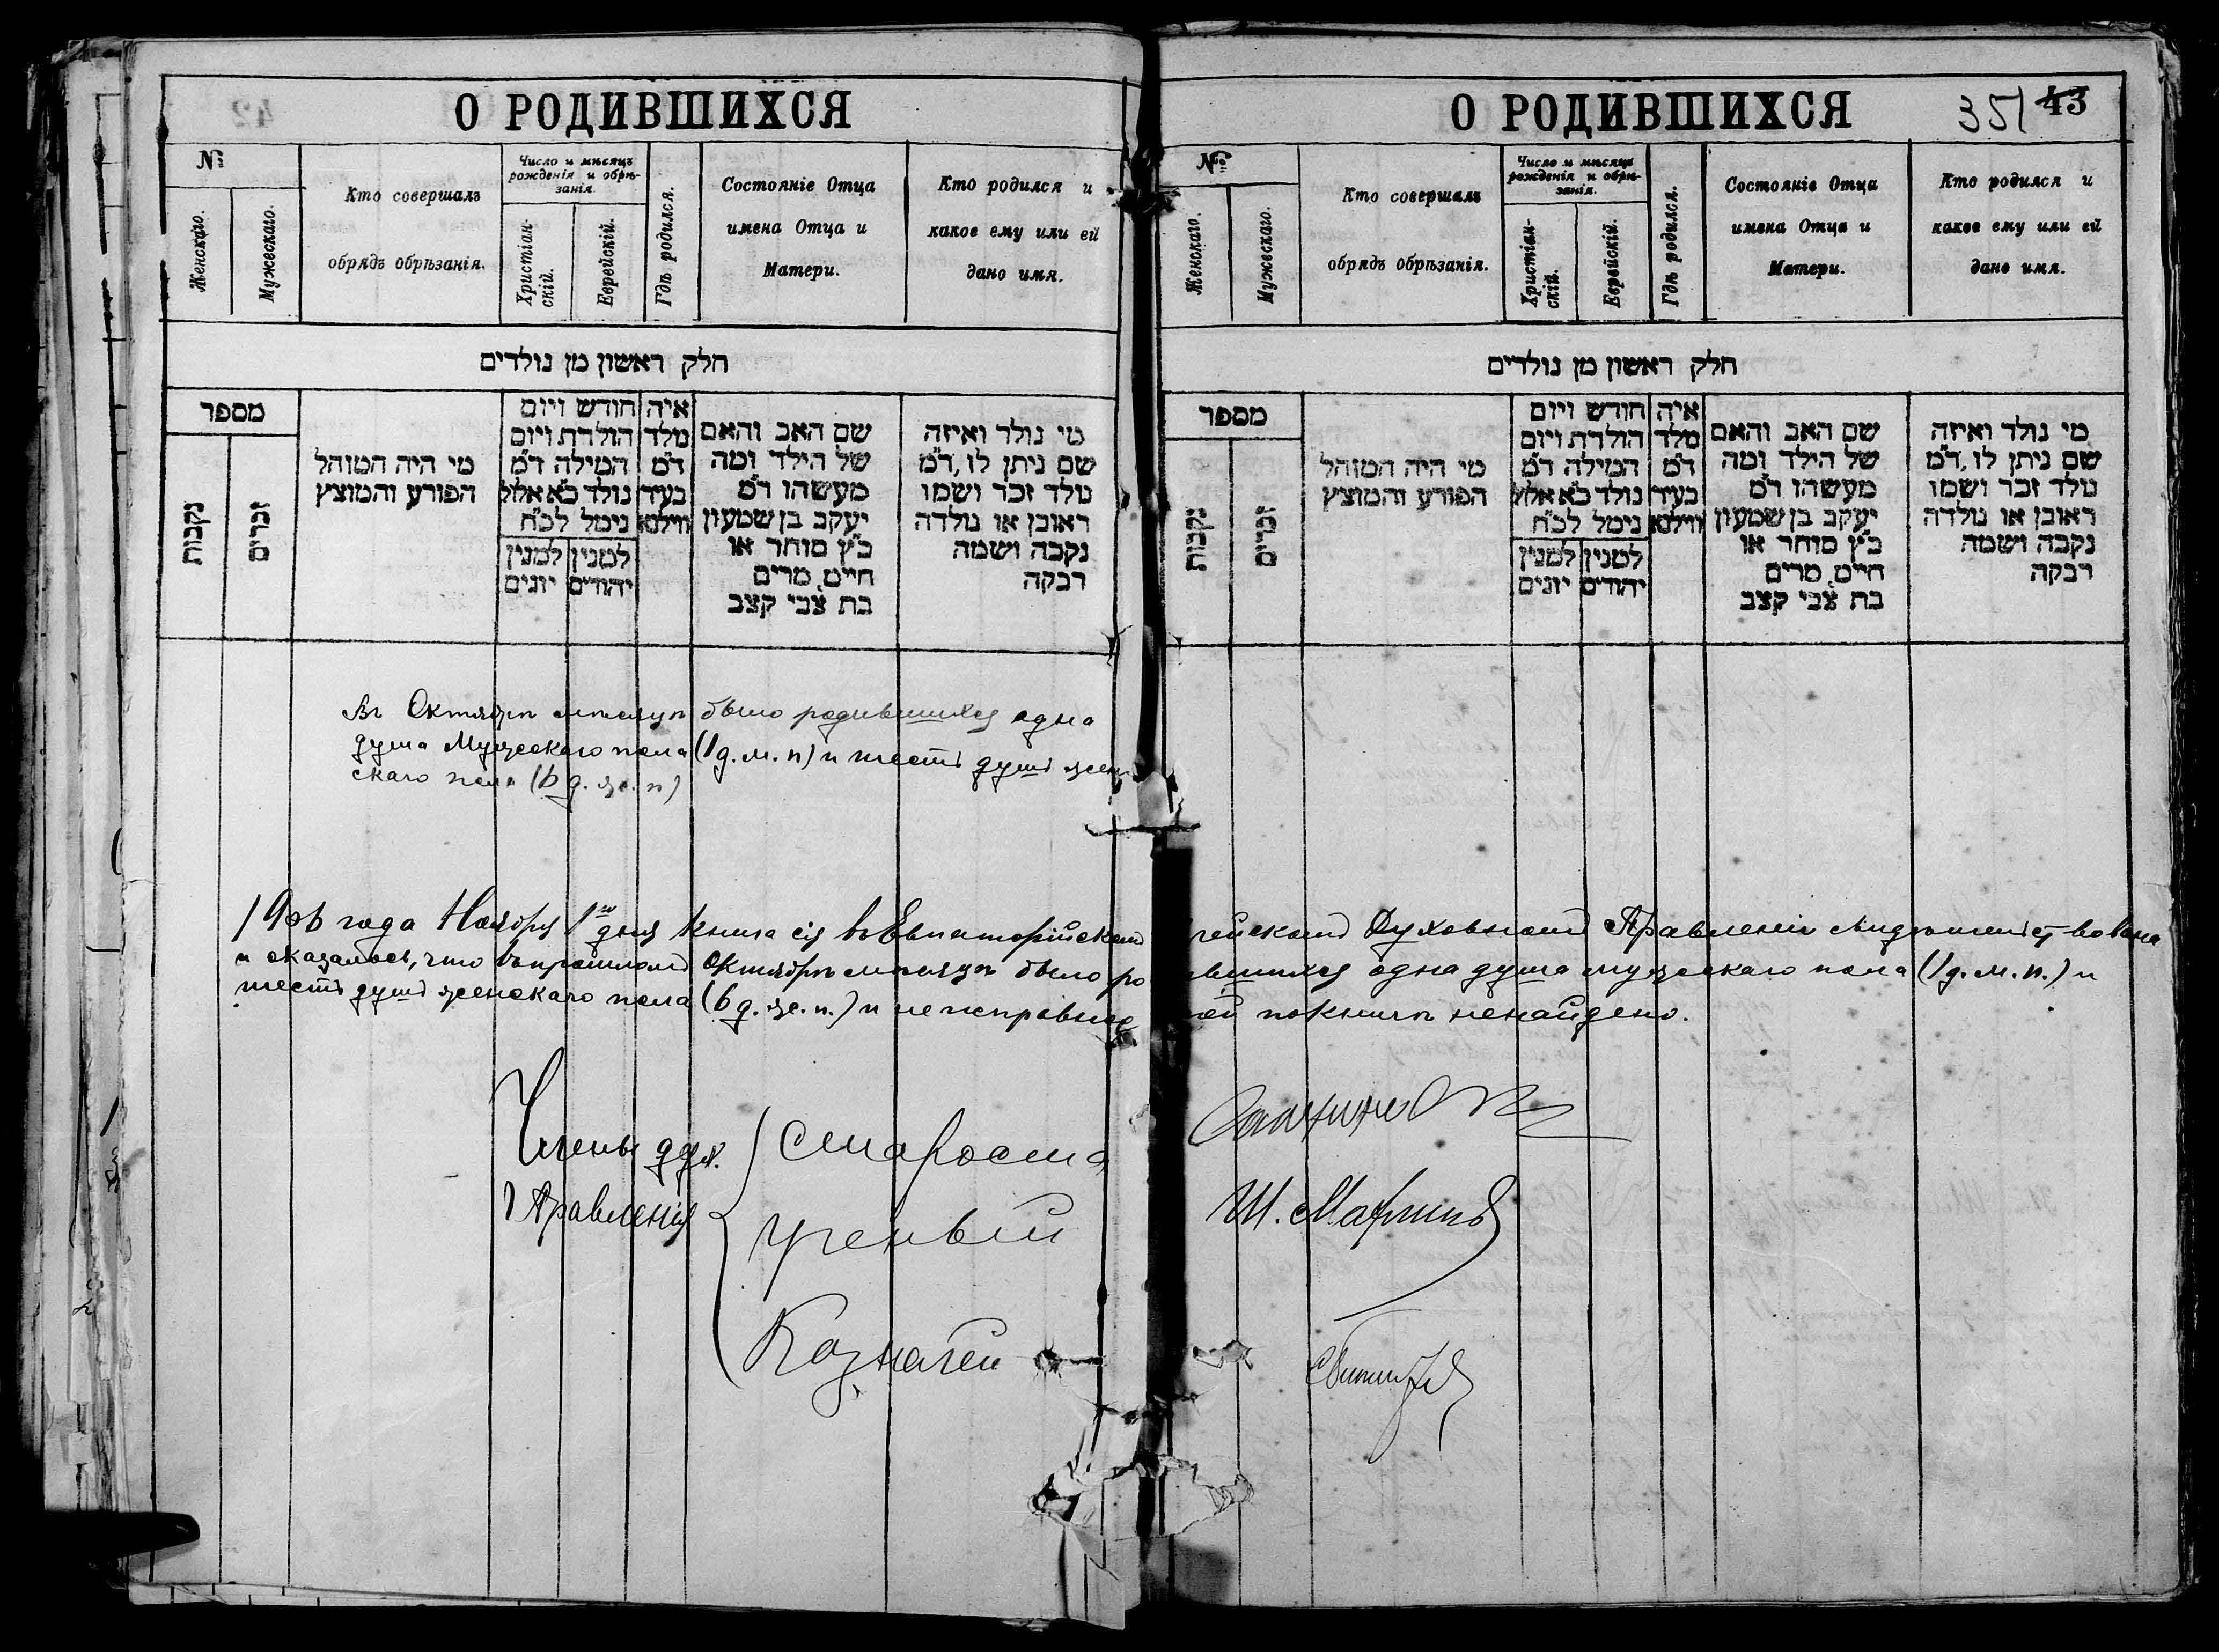 О РОДИВШИХСЯ
№
Женскаго.
Мужескаго.
Кто совершалъ
обрядъ обрѣзанія.
Число и мѣсяцъ
рожденія и обрѣ-
занія.
Христіан-
скій.
Еврейскій.
Гдѣ родился.
Состояніе Отца
имена Отца и
Матери.
Кто родился и
какое ему или ей
дано имя.
חלק ראשון מן נולדים
מספר
נקבות
זכרים
מי היה המוהל
הפורע והמוצץ
חודש ויום
הולדת ויום
המילה ד״מ
נולד כ״א אלול
נימל לכ״ח
למנין יהודים
למנין יונים
איה
נולד
ד״מ
בעיר
ווילנא
שם האב והאם
של הילד ומה
מעשהו ד״מ
יעקב בן שמעון
כ״ץ סוחר או
חייט, מרים
בת צבי קצב
מי נולד ואיזה
שם ניתן לו, ד״מ
נולד זכר ושמו
ראובן או נולדה
נקבה ושמה
רבקה
Въ Октябрѣ мѣсяцѣ было родившихся одна
душа Мужескаго пола (1 д. м. п) и шесть душъ жен-
скаго пола (6 д. ж. п)
О РОДИВШИХСЯ
351 43
№
Женскаго.
Мужескаго.
Кто совершалъ
обрядъ обрѣзанія.
Число и мѣсяцъ
рожденія и обрѣ-
занія.
Христіан-
скій.
Еврейскій.
Гдѣ родился.
Состояніе Отца
имена Отца и
Матери.
Кто родился и
какое ему или ей
дано имя.
חלק ראשון מן נולדים
מספר
נקבות
זכרים
מי היה המוהל
הפורע והמוצץ
חודש ויום
הולדת ויום
המילה ד״מ
נולד כ״א אלול
נימל לכ״ח
למנין יהודים
למנין יונים
איה
נולד
ד״מ
בעיר
ווילנא
שם האב והאם
של הילד ומה
מעשהו ד״מ
יעקב בן שמעון
כ״ץ סוחר או
חייט, מרים
בת צבי קצב
מי נולד ואיזה
שם ניתן לו, ד״מ
נולד זכר ושמו
ראובן או נולדה
נקבה ושמה
רבקה
1906 года Ноября 1го дня книга сія въ Евпаторійскомъ рейскомъ Духовномъ Правленіи свидѣтельствована
и оказалось, что въ прошломъ Октябрѣ мѣсяцѣ было ро вшихся одна душа мужескаго пола (1 д. м. п.) и
шесть душъ женскаго пола (6 д. ж. п.) и неисправно ей по книгѣ ненайдено.
Члены дух.
Правленія
Староста
Ученый
Ш. Марьинъ
Казначей